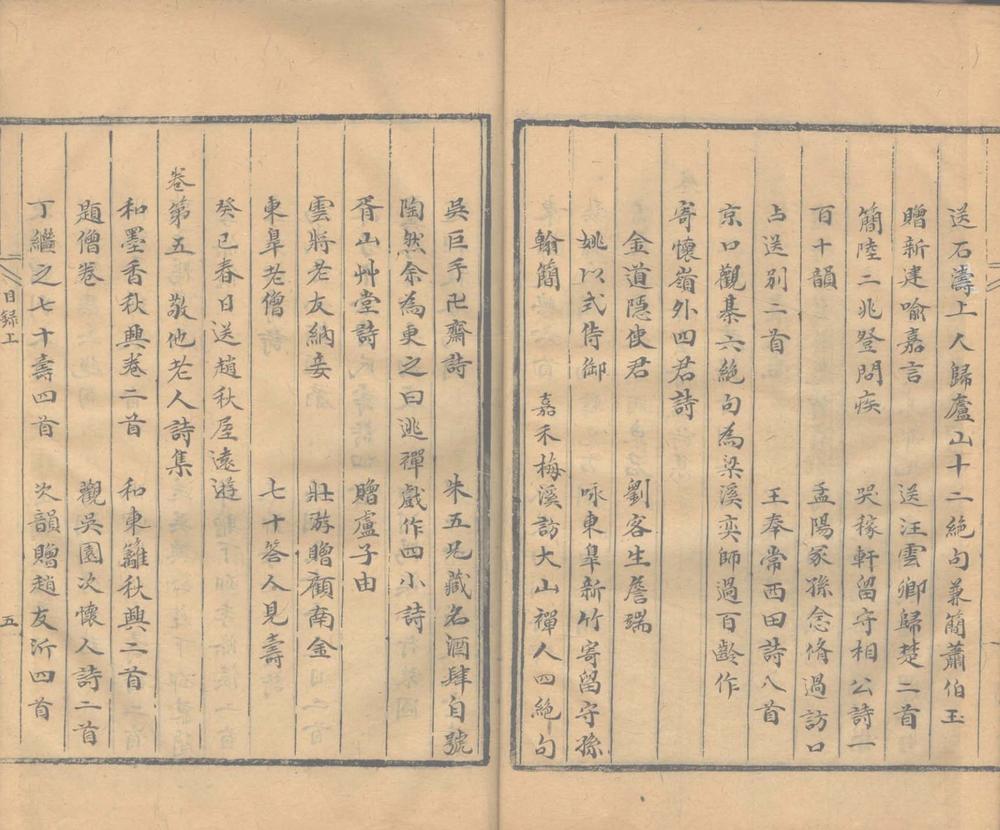 送石濤上人歸廬山十二絕句兼簡蕭伯玉
贈新建喻嘉言　送汪雲卿歸楚二首
簡陸二兆登問疾　哭稼軒留守相公詩一
百十韻　孟陽冢孫念脩過訪口
占送別二首　王奉常西田詩八首
京口觀棊六絕句為梁溪奕師過百齡作
寄懷嶺外四君詩
金道隱使君　劉客生詹端
姚以式侍御　咏東皐新竹寄留守孫
翰簡　嘉禾梅溪訪大山禪人四絕句
吳巨手卍齋詩　朱五兄藏名酒肆自號
陶然余為更之曰逃禪戲作四小詩
胥山艸堂詩　贈盧子由
雲將老友納妾　壯游贈顧南金
東皐老僧　七十答人見壽
癸巳春日送趙秋屋遠遊
卷第五　敬他老人詩集
和墨香秋興卷二首　和東籬秋興二首
題僧卷　觀吳園次懷人詩二首
丁繼之七十壽四首　次韻贈趙友沂四首
目録上
五